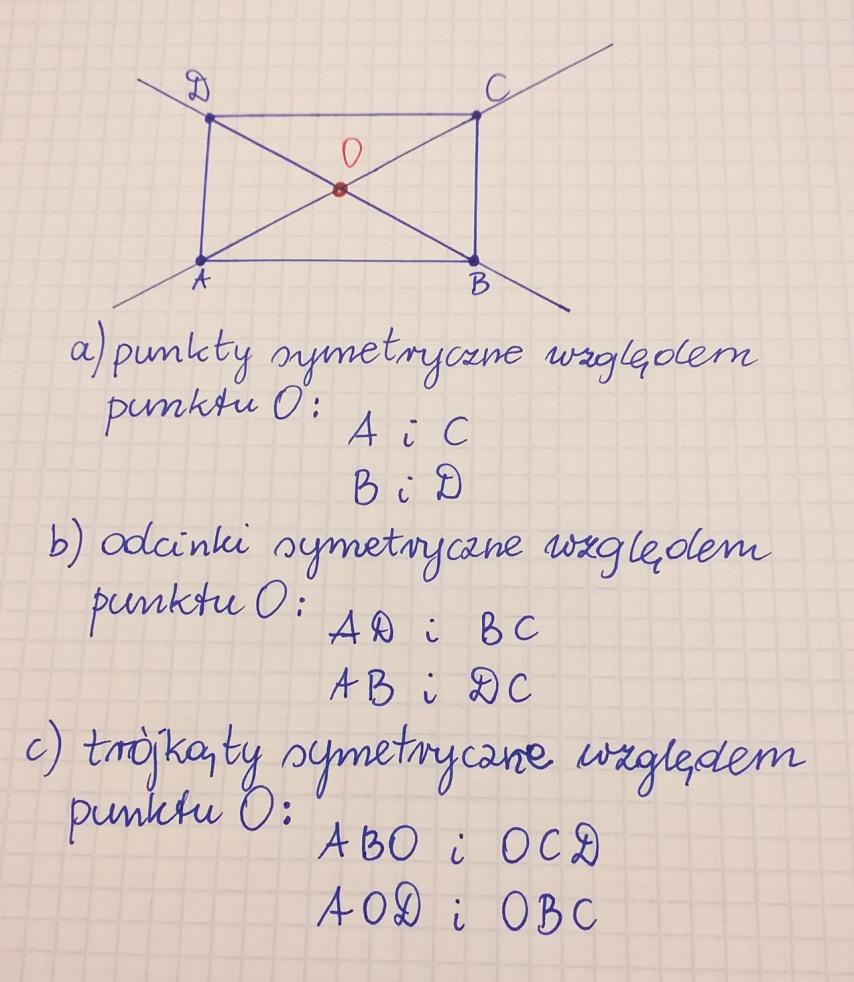 D C
O
A B
a) punkty symetryczne względem
punktu O:
A i C
B i D
b) odcinki symetryczne względem
punktu O:
AD i BC
AB i DC
c) trójkąty symetryczne względem
punktu O:
ABO i OCD
AOD i OBC